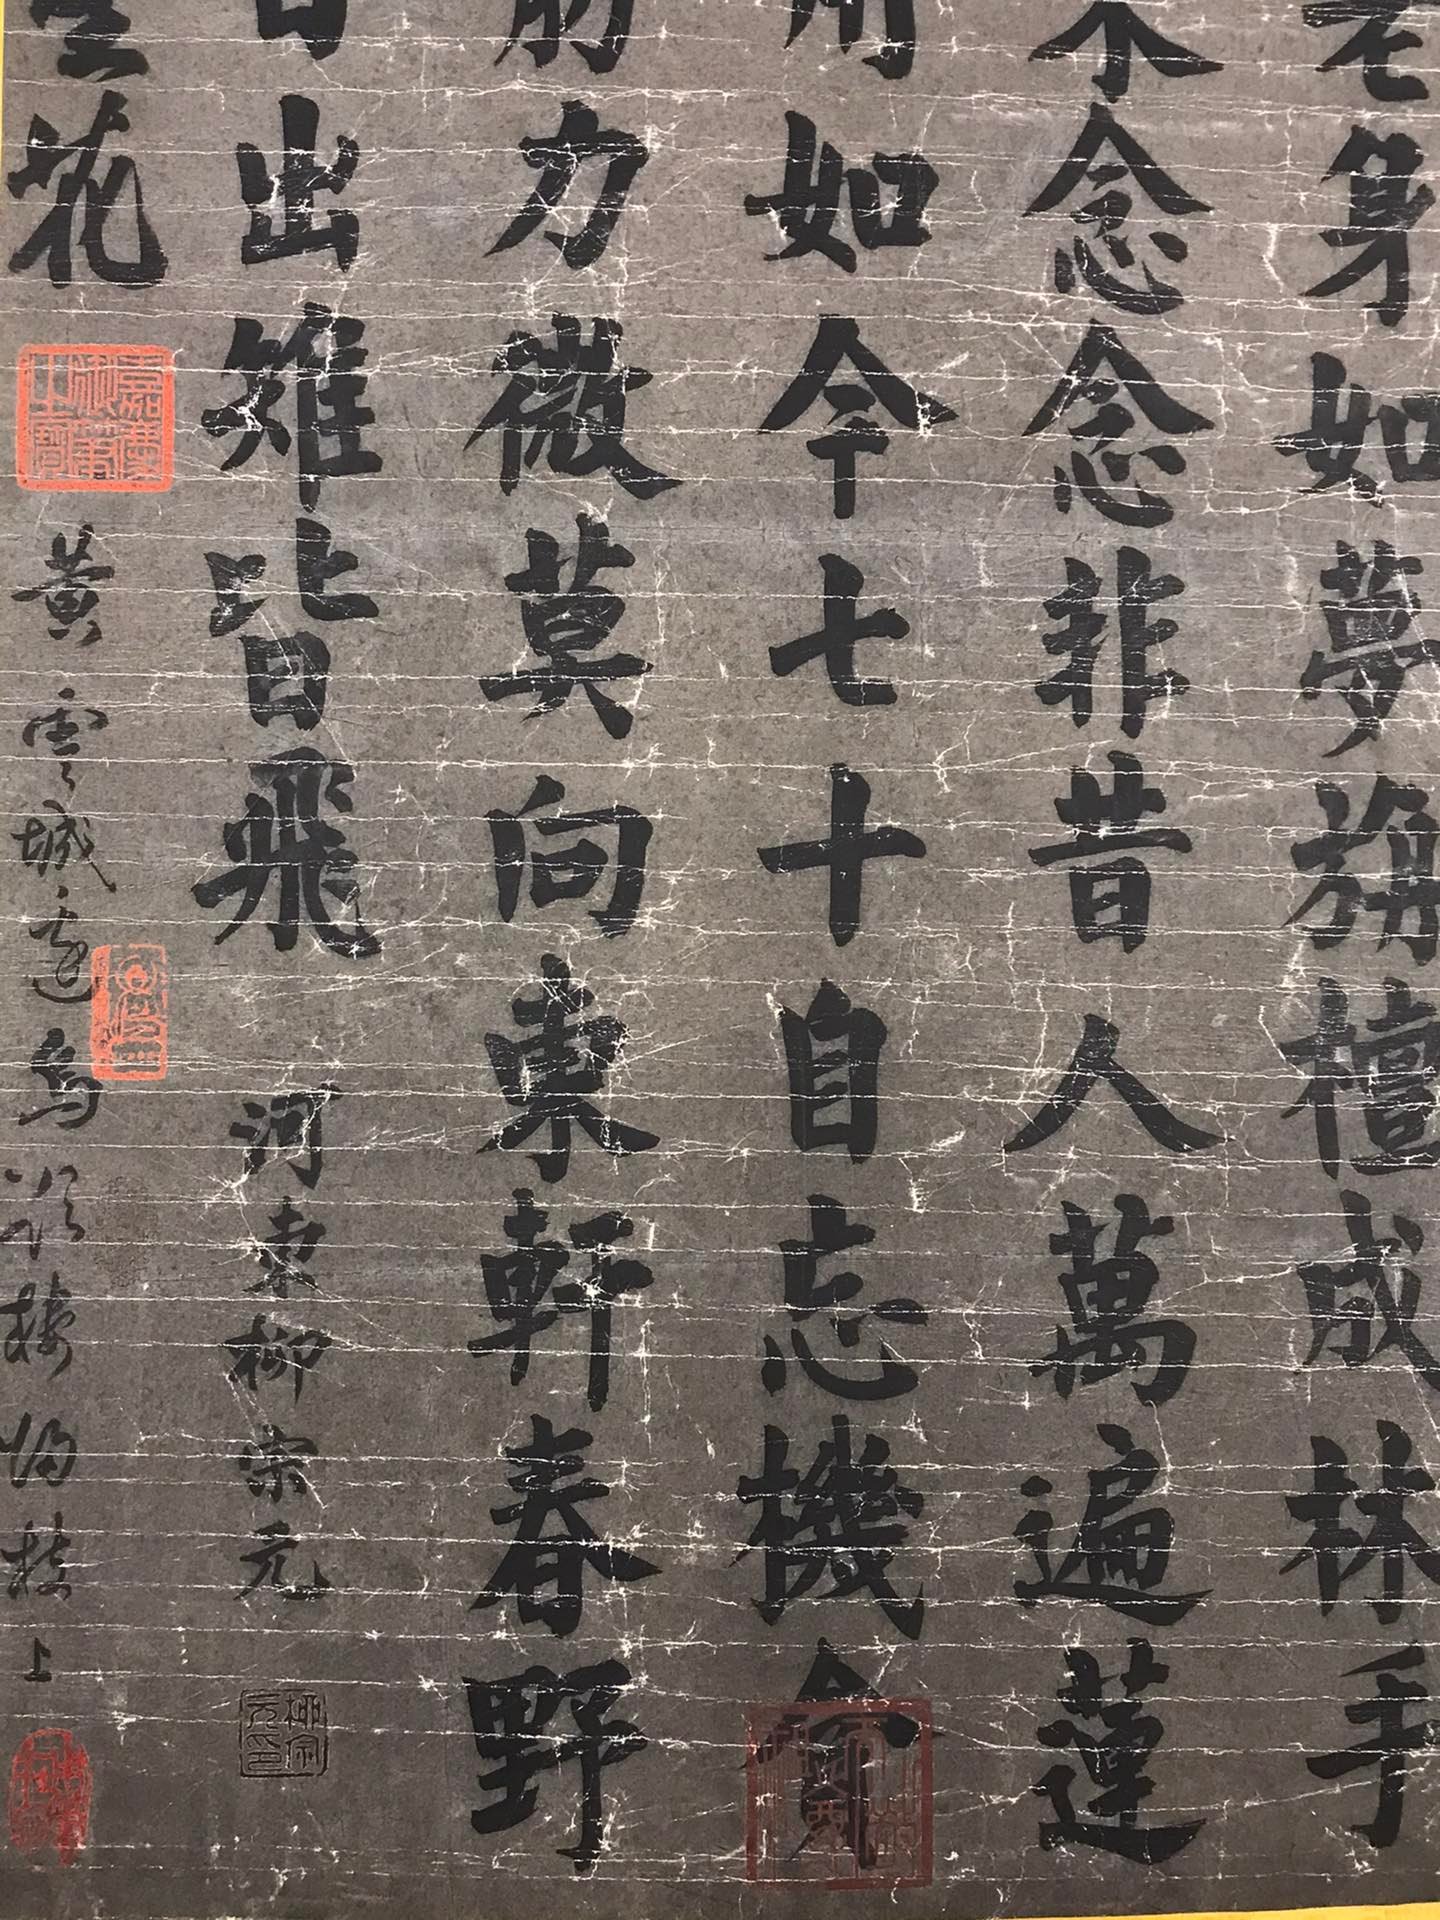 老身如夢旃檀成林手
來念念非昔人萬遍蓮
用如今七十自忘機貪
筋力微莫向東軒春野
日出雉皆飛 河東柳宗元
柳宗元印
花
嘉慶御筆之寶
黃雲城邊烏欲棲歸枝上